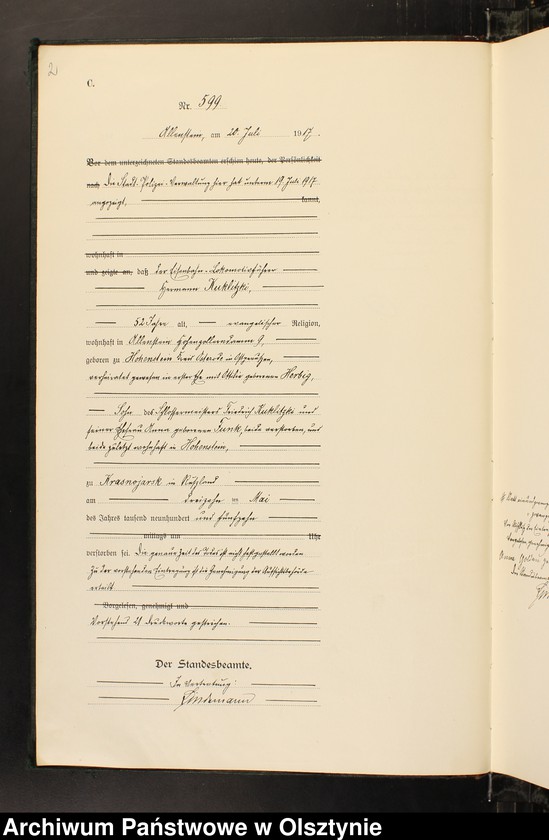 2
C.
Nr. 599
Allenstein, am 20. Juli 1917.
Vor dem unterzeichneten Standesbeamten erschien heute, der Persönlichkeit
nach Die Stadt-Polizei-Verwaltung hier hat unterm 19. Juli 1917
angezeigt, kannt,
wohnhaft in
und zeigte an, daß der Eisenbahn-Lokomotivführer
Hermann Kuklitzki,
52 Jahre alt, evangelischer Religion,
wohnhaft in Allenstein Hohenzollerndamm 9,
geboren zu Hohenstein Kreis Osterode in Ostpreußen,
verheiratet gewesen in erster Ehe mit Ottilie geborenen Herbig,
Sohn des Schlossermeisters Friedrich Kuklitzki und
seiner Ehefrau Anna geborenen Funk, beide verstorben, und
beide zuletzt wohnhaft in Hohenstein,
zu Krasnojarsk in Rußland
am dreizehn ten Mai
des Jahres tausend neunhundert und fünfzehn
mittags um Uhr
verstorben sei. Die genaue Zeit des Todes ist nicht festgestellt worden
Zu der vorstehenden Eintragung ist die Genehmigung der Aufsichtsbehörde
erteilt.
Vorgelesen, genehmigt und
Vorstehend 21 Druckworte gestrichen.
Der Standesbeamte.
In Vertretung:
Lindemann
Archiwum Państwowe w Olsztynie